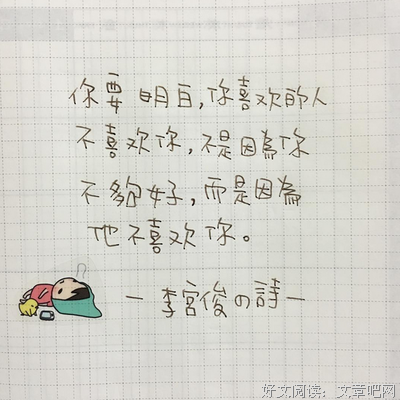 你要明白,你喜欢的人
不喜欢你,不是因為你
不夠好,而是因為
他不喜欢你。
—李宮俊の詩—
好文阅读:文章吧网